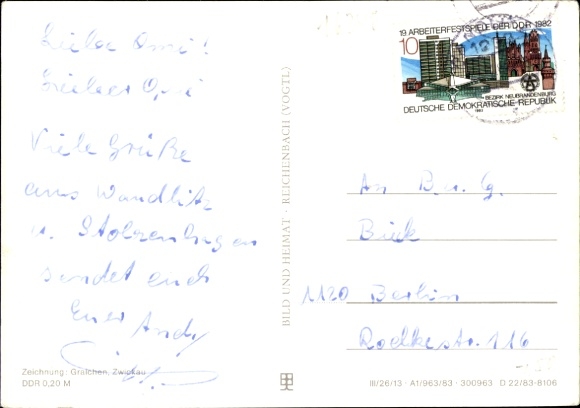 Liebe Omi!
Lieber Opi
Viele Grüße
aus Wandlitz
u. Stolzenhagen
sendet euch
Euer Andy
Zeichnung: Gralchen, Zwickau
DDR 0,20 M
BILD UND HEIMAT · REICHENBACH (VOGTL)
19. ARBEITERFESTSPIELE DER DDR 1982
10
BEZIRK NEUBRANDENBURG
DEUTSCHE DEMOKRATISCHE REPUBLIK
An B. u. G.
Bick
1120 Berlin
Roelkestr. 116
III/26/13 · A1/963/83 · 300963 D 22/83-8106